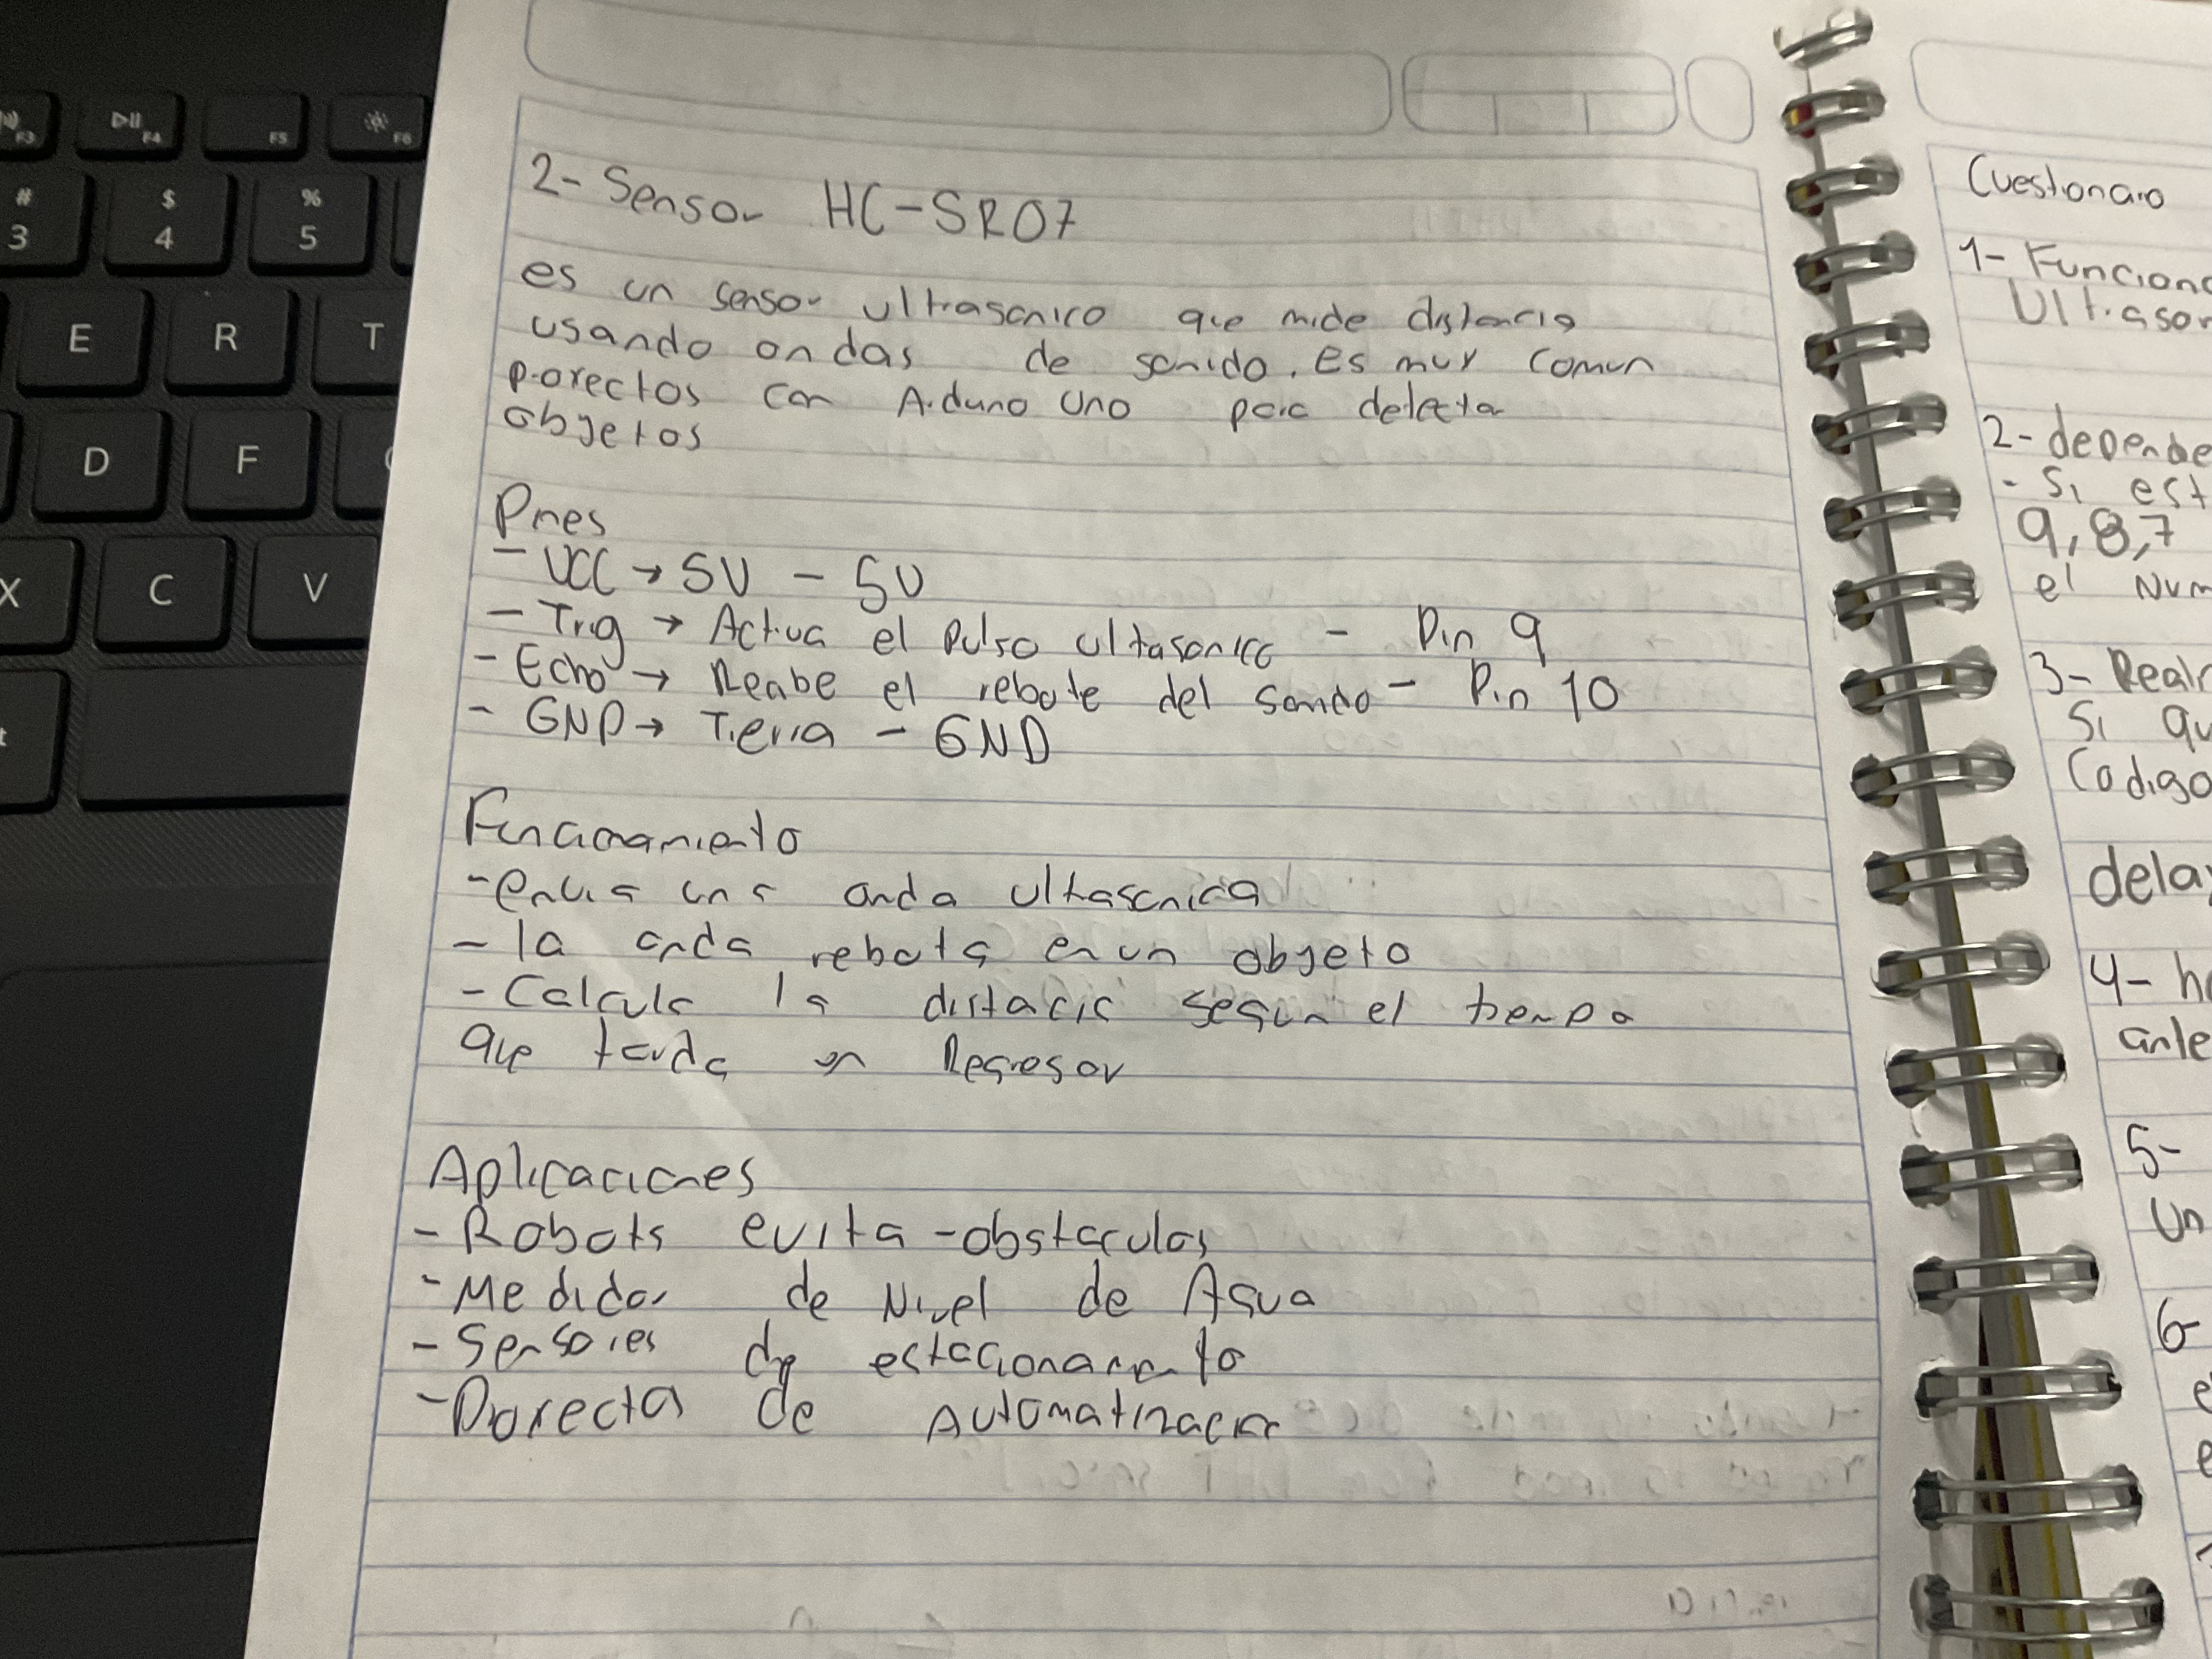 2- Sensor HC-SR07
es un sensor ultrasonico que mide distancia
usando ondas de sonido. Es muy comun
porectos con Arduno Uno para detectar
objetos
Pnes
- VCC → 5V - 5V
- Trig → Activa el Pulso ultasonico - Pin 9
- Echo → Reabe el rebote del sonido - Pin 10
- GND → Tierra - GND
Funcionamiento
- envia una onda ultasonica
- la onda rebota en un objeto
- Calcula la distacia segun el tiempo
que tarda en Regresar
Aplicaciones
- Robots evita-obstaculos
- Medidor de Nivel de Agua
- Sensores de estacionamento
- Porecta de Automatizacion
Cuestionario
1- Funciona
Ultrason
2- depende
- Si est
9,8,7
el Num
3- Realr
Si qu
Codigo
delay
4- ha
ante
5-
Un
6-